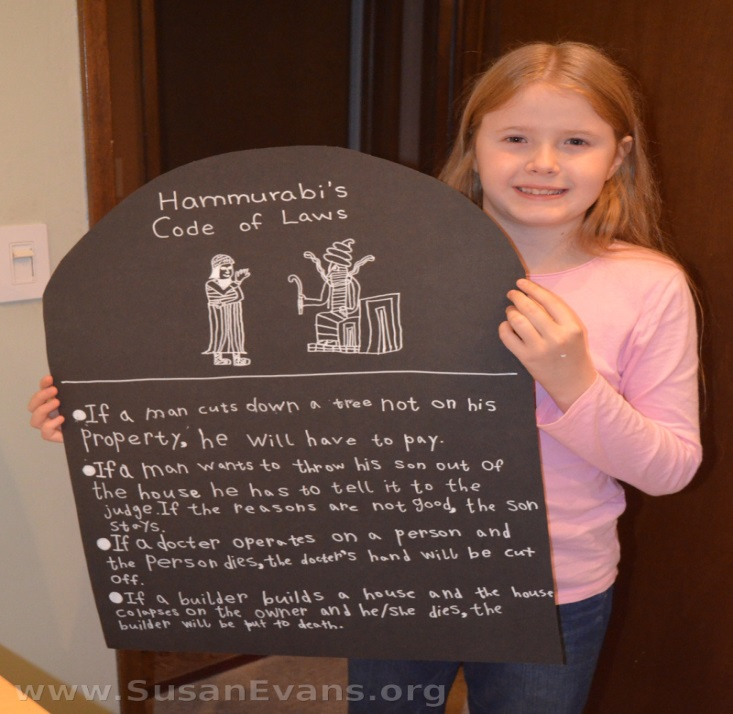 Hammurabi's
Code of Laws
●If a man cuts down a tree not on his
Property, he will have to pay.
●If a man wants to throw his son out of
the house he has to tell it to the
judge. If the reasons are not good, the son
stays.
●If a docter operates on a person and
the Person dies, the docter's hand will be cut
off.
●If a builder builds a house and the house
colapses on the owner and he/she dies, the
builder will be put to death.
www.SusanEvans.org